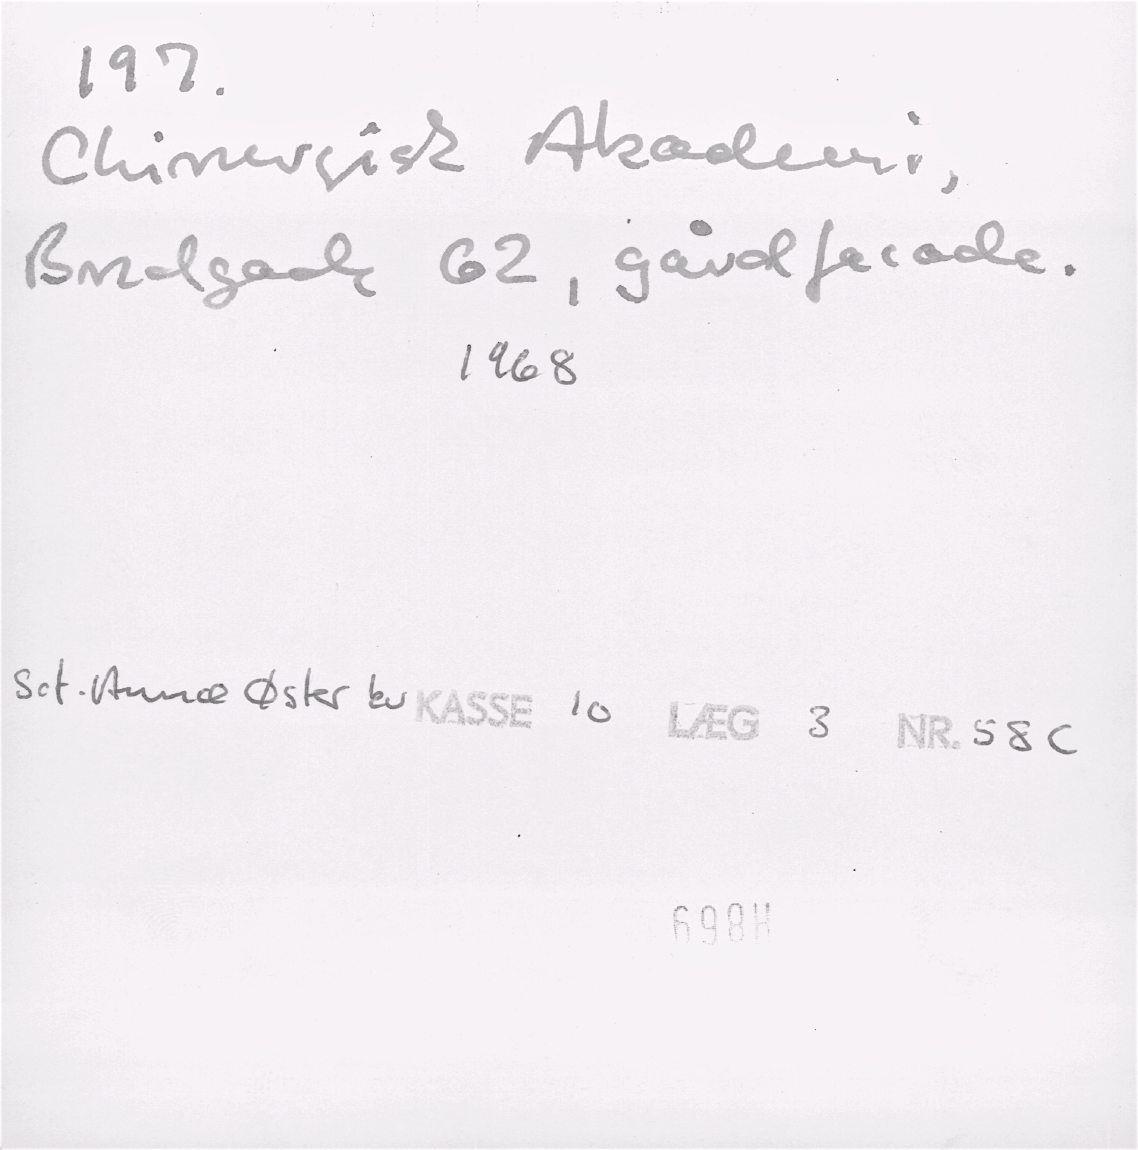 197.
Chirurgisk Akademi,
Bredgade 62, gårdfacade.
1968
Sct. Annæ Øster kv KASSE 10 LÆG 3 NR. 58 C